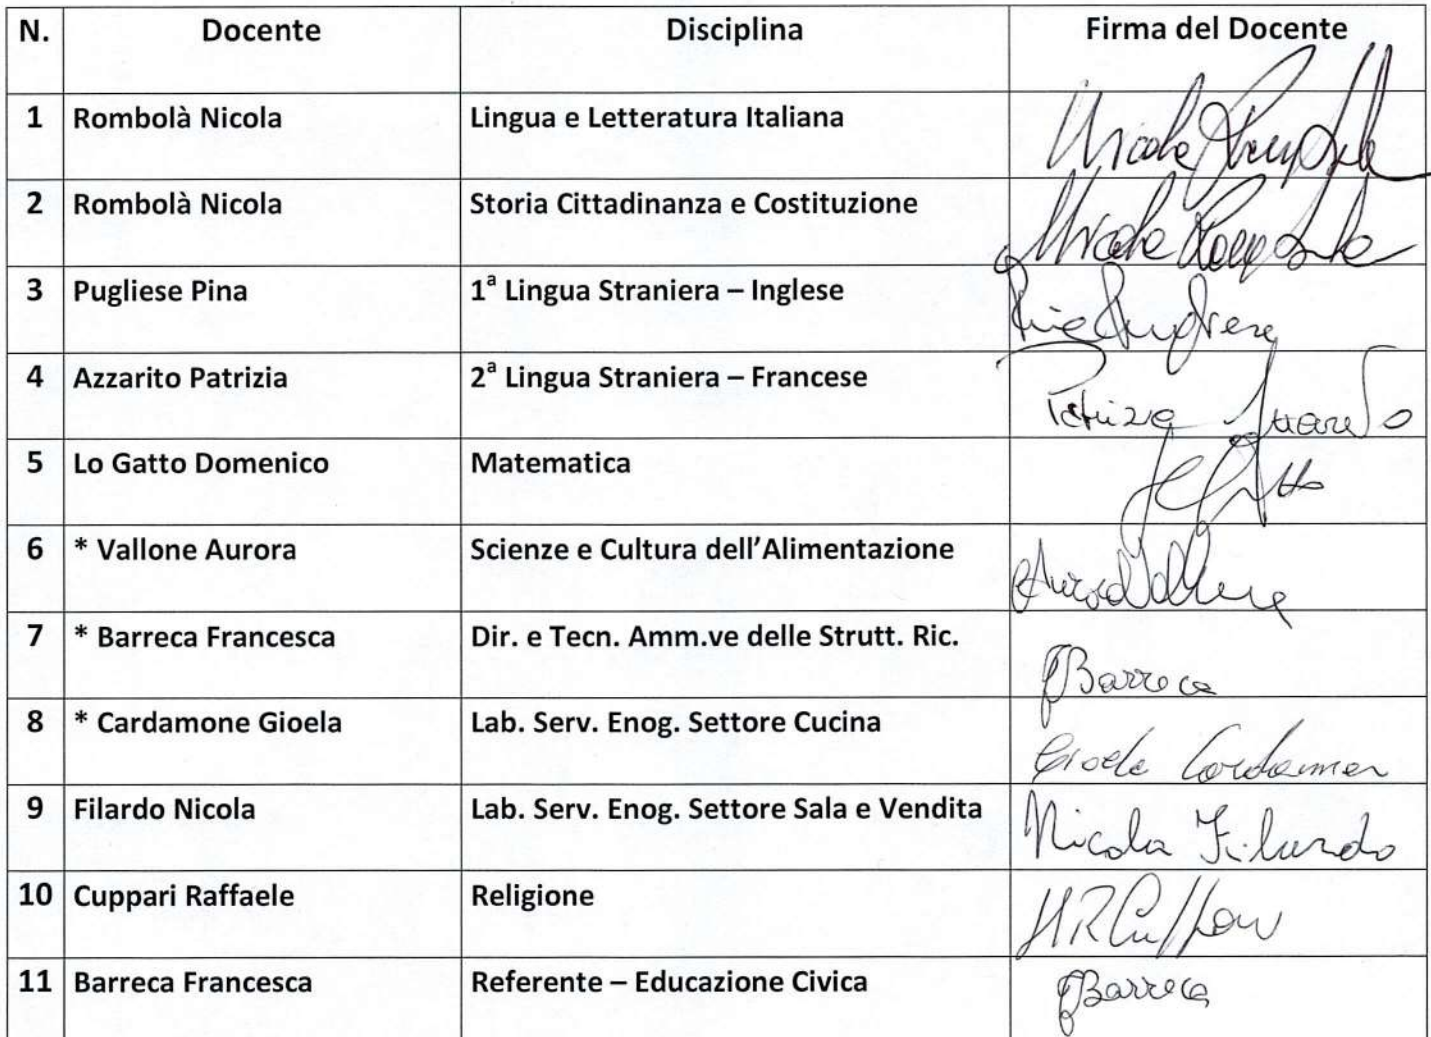 N. Docente Disciplina Firma del Docente
1 Rombolà Nicola Lingua e Letteratura Italiana Nicola Rombolà
2 Rombolà Nicola Storia Cittadinanza e Costituzione Nicola Rombolà
3 Pugliese Pina 1ª Lingua Straniera – Inglese Pina Pugliese
4 Azzarito Patrizia 2ª Lingua Straniera – Francese Patrizia Azzarito
5 Lo Gatto Domenico Matematica Lo Gatto
6 * Vallone Aurora Scienze e Cultura dell’Alimentazione Aurora Vallone
7 * Barreca Francesca Dir. e Tecn. Amm.ve delle Strutt. Ric. FBarreca
8 * Cardamone Gioela Lab. Serv. Enog. Settore Cucina Gioela Cardamone
9 Filardo Nicola Lab. Serv. Enog. Settore Sala e Vendita Nicola Filardo
10 Cuppari Raffaele Religione
11 Barreca Francesca Referente – Educazione Civica FBarreca